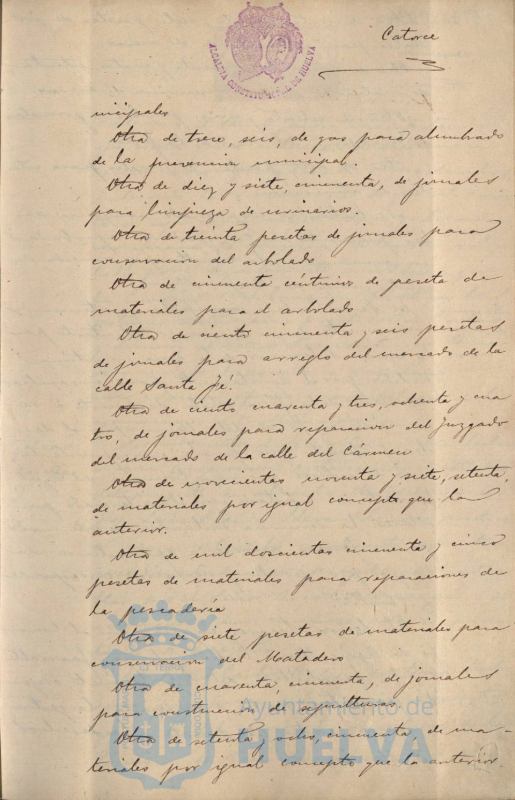 Catorce
ALCALDIA CONSTITUCIONAL DE HUELVA
nicipales
Otra de trece, seis, de gas para alumbrado
de la prevencion municipal.
Otra de diez y siete, cincuenta, de jornales
para limpieza de urinarios.
Otra de treinta pesetas de jornales para
conservacion del arbolado
Otra de cincuenta céntimos de peseta de
materiales para el arbolado
Otra de ciento cincuenta y seis pesetas
de jornales para arreglo del mercado de la
calle Santa Fé.
Otra de ciento cuarenta y tres, ochenta y cua
tro, de jornales para reparacion del Juzgado
del mercado de la calle del Cármen
Otra de novecientas noventa y siete, setenta,
de materiales por igual concepto que la
anterior.
Otra de mil doscientas cincuenta y cinco
pesetas de materiales para reparaciones de
la pescadería
Otra de siete pesetas de materiales para
conservacion del Matadero
Otra de cuarenta, cincuenta, de jornales
para construccion de sepulturas.
Otra de setenta y ocho, cincuenta de ma-
teriales por igual concepto que la anterior.
Ayuntamiento de
HUELVA